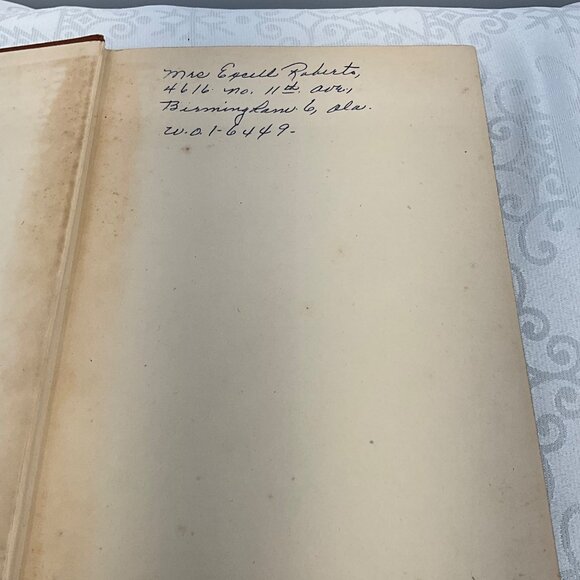 Mrs Excell Roberts,
4616 no. 11th. ave,
Birmingham 6, Ala.
W.O.1-6449-